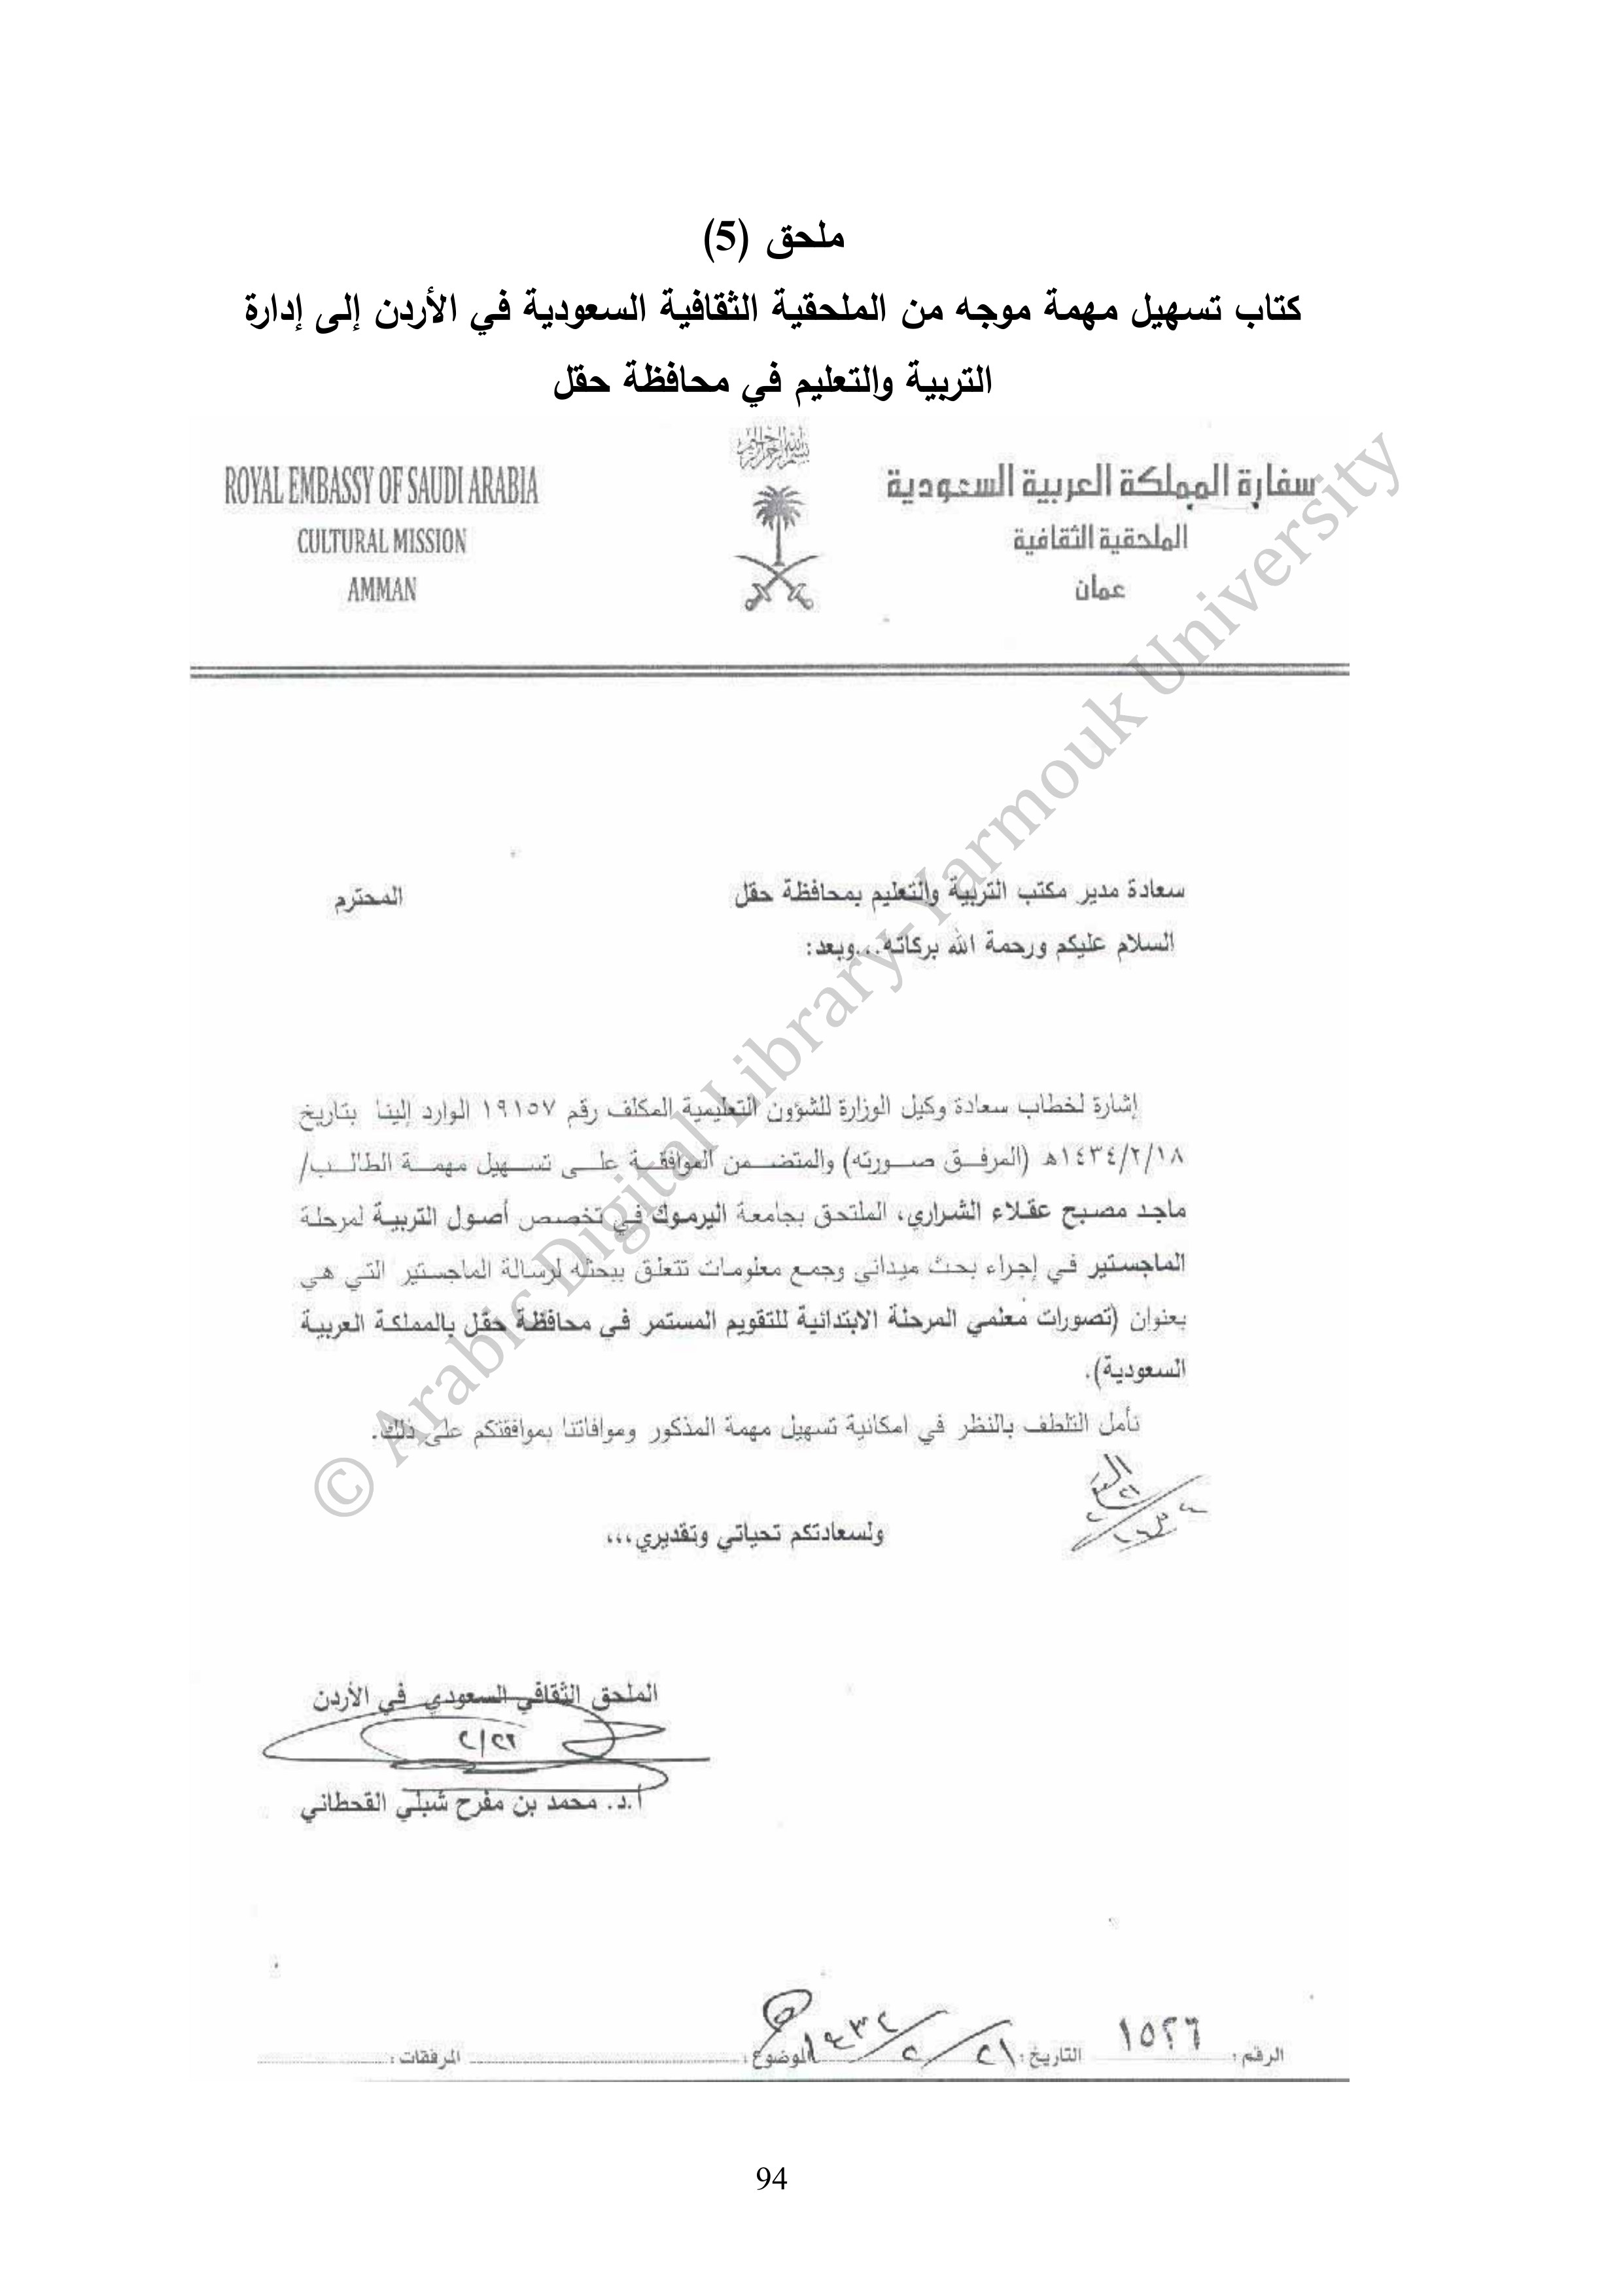 ملحق (5)
كتاب تسهيل مهمة موجه من الملحقية الثقافية السعودية في الأردن إلى إدارة
التربية والتعليم في محافظة حقل
سفارة المملكة العربية السعودية
الملحقية الثقافية
عمان
ROYAL EMBASSY OF SAUDI ARABIA
CULTURAL MISSION
AMMAN
سعادة مدير مكتب التربية والتعليم بمحافظة حقل المحترم
السلام عليكم ورحمة الله بركاته...وبعد:
إشارة لخطاب سعادة وكيل الوزارة للشؤون التعليمية المكلف رقم ١٩١٥٧ الوارد إلينا بتاريخ
١٤٣٤/٢/١٨هـ (المرفق صورته) والمتضمن الموافقة على تسهيل مهمة الطالب/
ماجد مصبح عقلاء الشراري، الملتحق بجامعة اليرموك في تخصص أصول التربية لمرحلة
الماجستير في إجراء بحث ميداني وجمع معلومات تتعلق ببحثه لرسالة الماجستير التي هي
بعنوان (تصورات معلمي المرحلة الابتدائية للتقويم المستمر في محافظة حقل بالمملكة العربية
السعودية).
نأمل التلطف بالنظر في امكانية تسهيل مهمة المذكور وموافاتنا بموافقتكم على ذلك.
ولسعادتكم تحياتي وتقديري،،،
الملحق الثقافي السعودي في الأردن
٢/٢٢
أ.د. محمد بن مفرح شبلي القحطاني
الرقم: ١٥٢٦ التاريخ: ٢١/٢/١٤٣٤ الموضوع: المرفقات:
© Arabic Digital Library-Yarmouk University
94